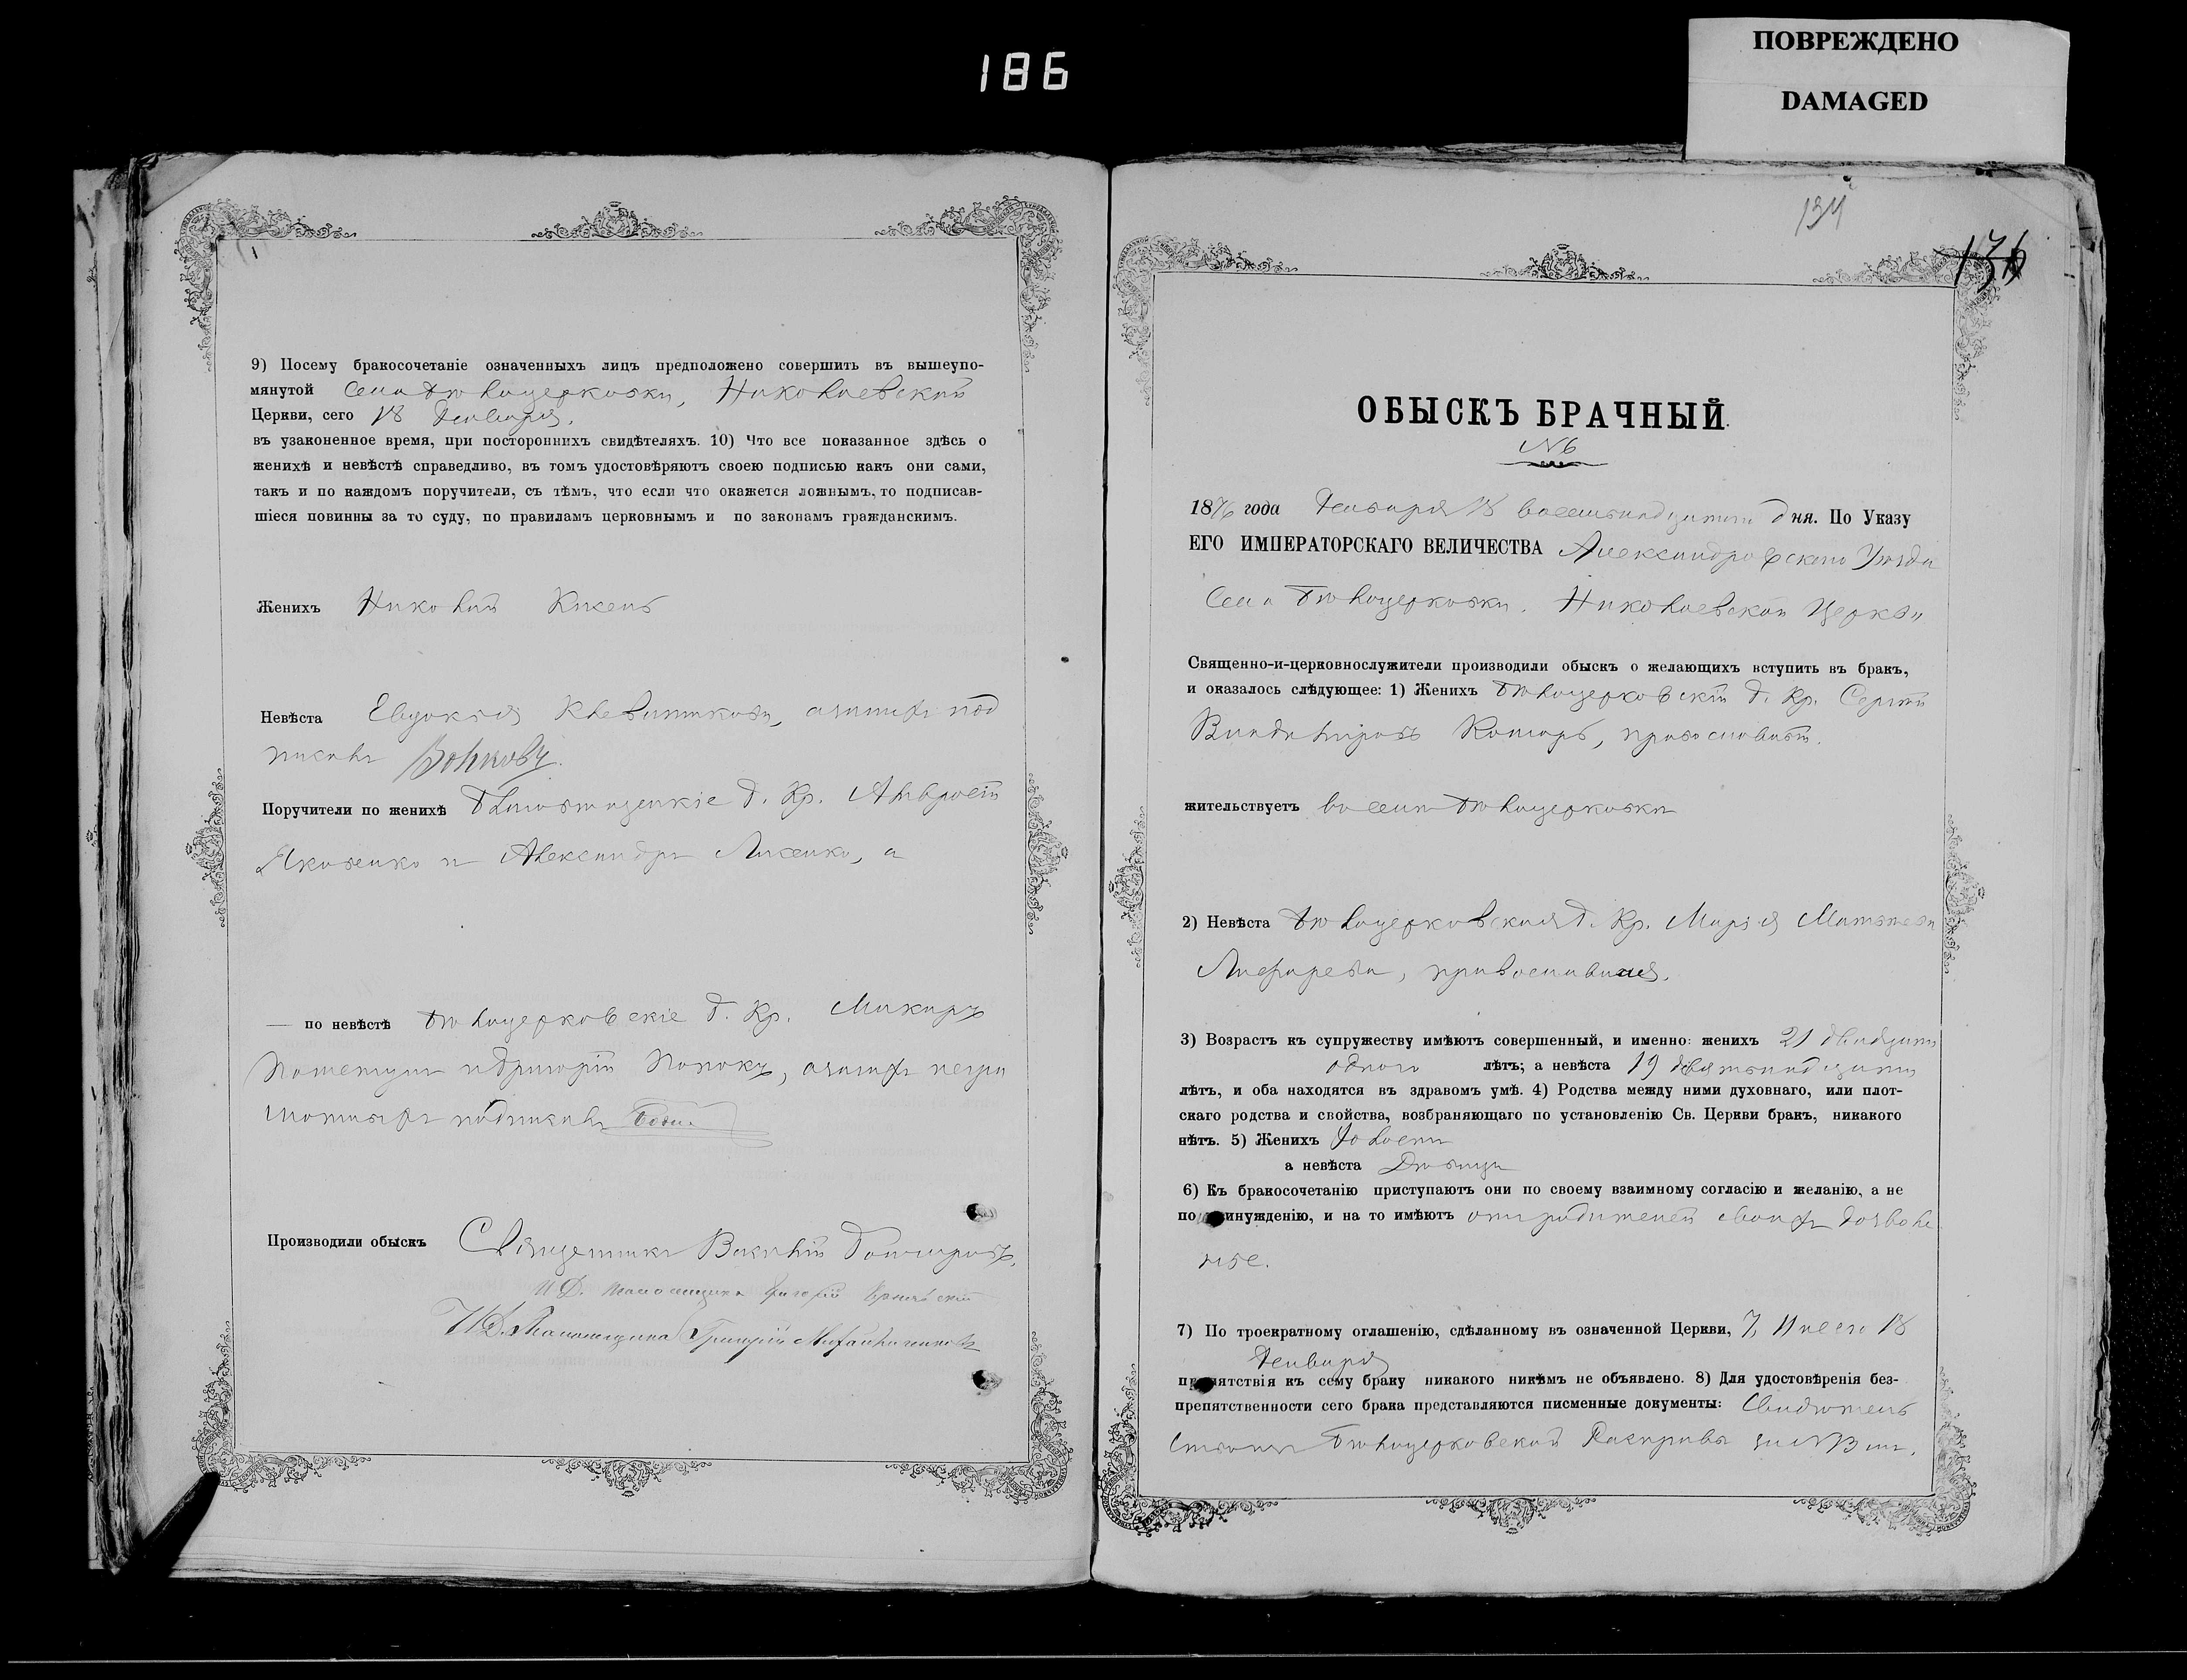 186
ПОВРЕЖДЕНО
DAMAGED
9) Посему бракосочетаніе означенныхъ лицъ предположено совершить въ вышеупо-
мянутой села Бѣлоцерковки, Николаевской
Церкви, сего 18 Генваря.
въ узаконенное время, при постороннихъ свидѣтеляхъ. 10) Что все показанное здѣсь о
женихѣ и невѣстѣ справедливо, въ томъ удостовѣряютъ своею подписью какъ они сами,
такъ и по каждомъ поручители, съ тѣмъ, что если что окажется ложнымъ, то подписав-
шіеся повинны за то суду, по правиламъ церковнымъ и по законамъ гражданскимъ.
Женихъ Николай
Невѣста Евдокія
Поручители по женихѣ д. Кр. Амвросій
Яковенко и Александръ Лисенко, а
— по невѣстѣ Бѣлоцерковскіе д. Кр. Макаръ
и Григорій
Производили обыскъ Священникъ Василій
И. Д. Григорій
И. Д. Григорій
134
ОБЫСКЪ БРАЧНЫЙ.
№ 6
1876 года Генваря 18 восемьнадцатаго дня. По Указу
ЕГО ИМПЕРАТОРСКАГО ВЕЛИЧЕСТВА Александровскаго Уѣзда
Села Бѣлоцерковки. Николаевской Церкви
Священно-и-церковнослужители производили обыскъ о желающихъ вступить въ бракъ,
и оказалось слѣдующее: 1) Женихъ Бѣлоцерковскій д. Кр. Сергій
Владиміровъ православный.
жительствуетъ въ селѣ Бѣлоцерковки
2) Невѣста Бѣлоцерковская д. Кр. Марія Матвѣева
православная.
3) Возрастъ къ супружеству имѣютъ совершенный, и именно: женихъ 21 двадцать
одного лѣтъ; а невѣста 19 девятьнадцать
лѣтъ, и оба находятся въ здравомъ умѣ. 4) Родства между ними духовнаго, или плот-
скаго родства и свойства, возбраняющаго по установленію Св. Церкви бракъ, никакого
нѣтъ. 5) Женихъ холостъ
а невѣста Дѣвица
6) Къ бракосочетанію приступаютъ они по своему взаимному согласію и желанію, а не
по принужденію, и на то имѣютъ отъ родителей своихъ дозволе
ніе.
7) По троекратному оглашенію, сдѣланному въ означенной Церкви, 7, 11 и сего 18
Генваря
препятствія къ сему браку никакого никѣмъ не объявлено. 8) Для удостовѣренія без-
препятственности сего брака представляются писменные документы: Свидѣтель
ство Бѣлоцерковской Расправы за №